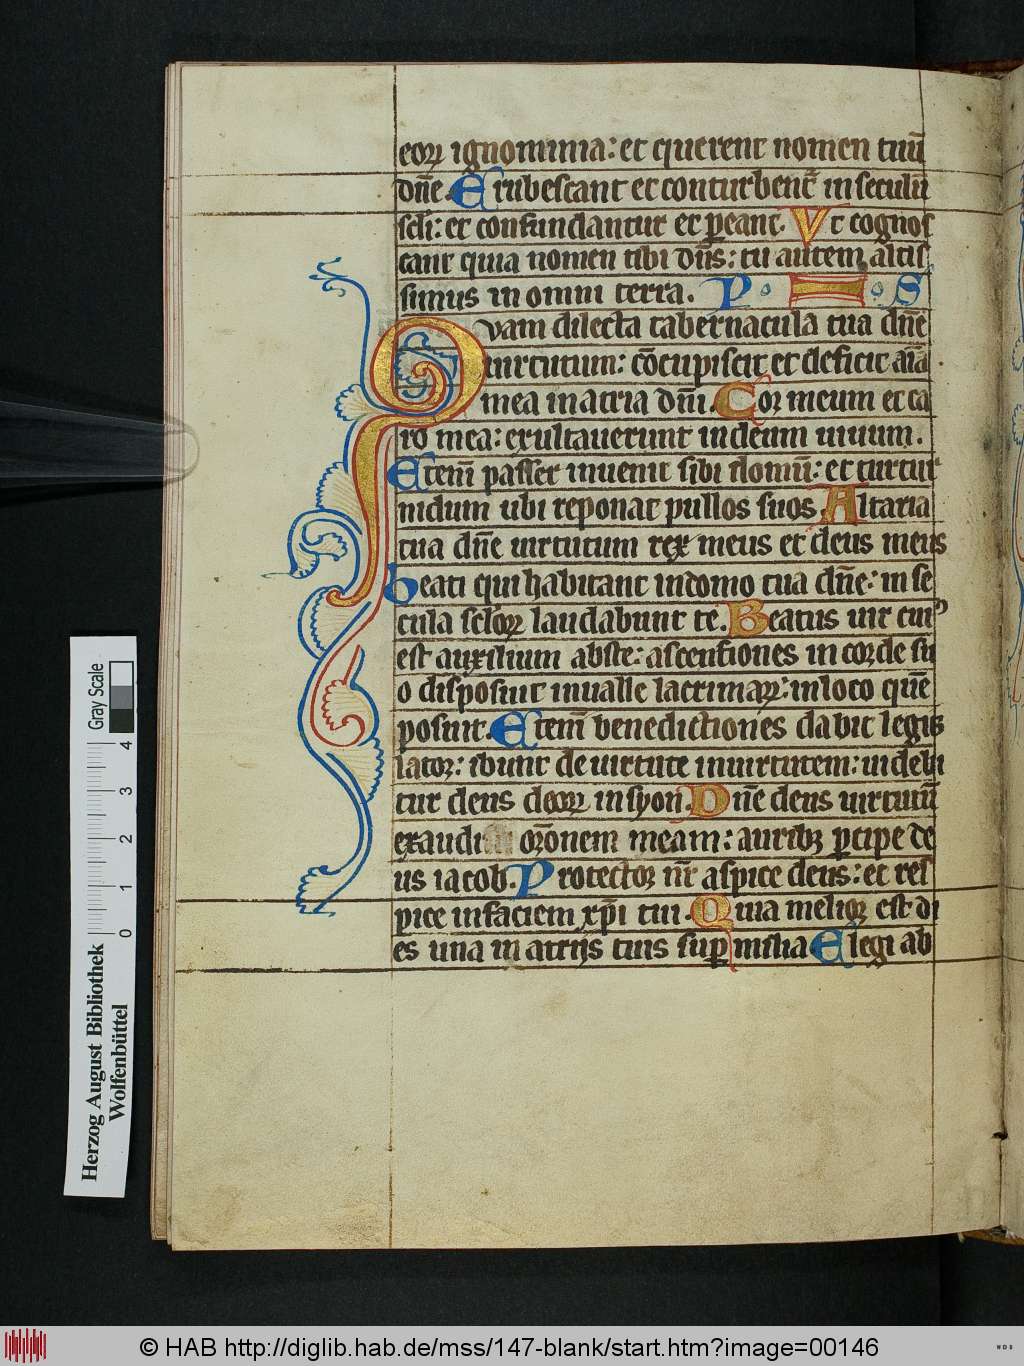 eoꝝ ignominia: et querent nomen tuū
dn̄e. Erubescant et conturbent᷑ in seculū
scl̄i: et confundantur et ꝑeant. Vt cognos
cant quia nomen tibi dn̄s: tu autem altis
simus in omni terra. P S
Quam dilecta tabernacula tua dn̄e
uirtutum: cōcupiscit et deficit aīa
mea in atria dn̄i. Cor meum et ca
ro mea: exultauerunt in deum uiuum.
Etenī passer inuenit sibi domū: et turtur
nidum ubi reponat pullos suos. Altaria
tua dn̄e uirtutum rex meus et deus meus
Beati qui habitant in domo tua dn̄e: in se
cula scl̄oꝝ laudabunt te. Beatus uir cuiꝰ
est auxilium abs te: ascensiones in corde su
o disposuit in ualle lacrimaꝝ: in loco quē
posuit. Etenī benedictiones dabit legis
lator: ibunt de uirtute in uirtutem: uidebi
tur deus deoꝝ in syon. Dn̄e deus uirtutū
exaudi or̄onem meam: auribꝫ ꝑcipe de
us iacob. Protector nr̄ aspice deus: et res
pice in faciem xp̄i tui. Quia melior est di
es una in atrijs tuis suꝑ milia. Elegi ab
Gray Scale
0 1 2 3 4
Herzog August Bibliothek
Wolfenbüttel
© HAB http://diglib.hab.de/mss/147-blank/start.htm?image=00146